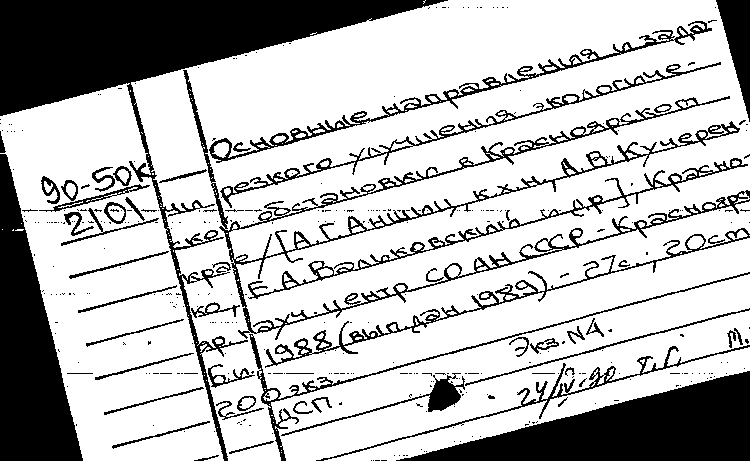 90-50к
2101
Основные направления и зада-
чи резкого улучшения экологиче-
ской обстановки в Красноярском
крае / [А.Г. Аншиц, к.х.н., А.В. Кучерен-
ко, Е.А. Вальковский и др]; Красно-
яр. науч. центр СО АН СССР. - Краснояр
Б.и., 1988 (вып. дан. 1989). - 27с.; 20см
200 экз.
ДСП.
Экз. N4.
24/IV-90 Т.Г. М.